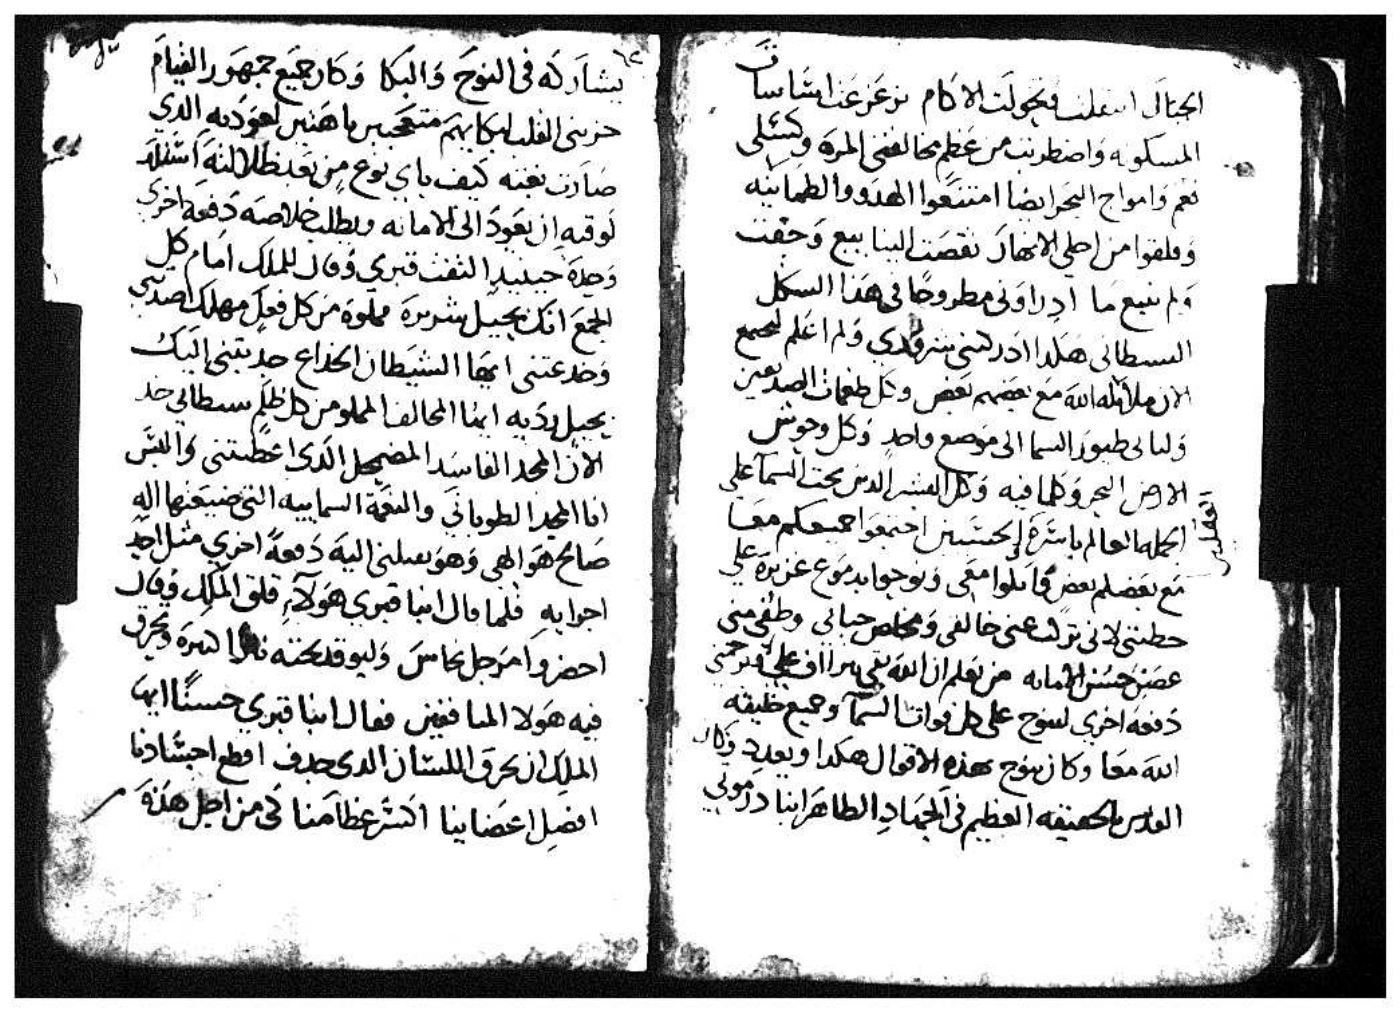 الجبال انتقلت فتحولت الاكام تزعزعت اساسات
المسكونه واضطربت من عظم مخالفتي المره وكسلي
نعم وامواج البحر ايضا امتنعوا الهدو والطمانينه
وقلقوا من اجلي الانهار نقصت الينابيع وجفت
ولم تنبع ما ادراوني مطروحا في هذا الشكل
الشيطاني هكذا ادركني شر ولم اعلم لجميع
الان ملايكه الله مع بعضهم بعض وكل طغمات الصديقين
ولياتي طيور السما الى موضع واحد وكل وحوش
الارض البحر وكلما فيه وكل البشر الذين تحت السما على
العقلين
الجمله العالم باسره اجتمعوا جميعكم معا
مع بعضكم بعض معي ونوحوا بدموع غزيره علي
خطيتي لاني تركت عني خالقي ومخلص حياتي وطفي مني
حسن الامانه من يعلم ان الله علي ويرحمني
دفعه اخري لينوح على كل قوات السما وجميع خليقه
الله معا وكان ينوح بهذه الاقوال هكذا ويعدد وكان
القديس بالحقيقه العظيم في الجهاد الطاهر انبا
يشاركه في النوح والبكا وكان جميع جمهور القيام
حزيني القلب لبكايهم متعجبين باهتين لهوديه الذي
صارت بغته كيف باي نوع من بعد ظلالته استطاع
لوقته ان يعود الى الامانه ويطلب خلاصه دفعه اخري
وحده حينيد التفت قبري وقال للملك امام كل
الجمع انك بحيل شريره مملوه من كل فعل مهلك اصدتني
وخدعتني ايها الشيطان الخداع جذبتني اليك
بحيل رديه ايها المخالف المملو من كل ظلم شيطاني خد
الان المجد الفاسد المضمحل الذي اعطيتني والبس
انا المجد الطوباني والنعمة السماييه التي ضيعتها اله
صالح هو الهي وهو يقبلني اليه دفعه اخري مثل احد
اجرايه فلما قال انبا قبري هولاء قلق الملك وقال
احضروا مرجل نحاس وليوقد تحته نار كثيره ويحرق
فيه هولا المنافقين فقال انبا قبري حسنا ايها
الملك ان يحرق اللسان الذي جدف اقطع اجسادنا
افصل اعضاينا اكسر عظامنا لكي من اجل هذه